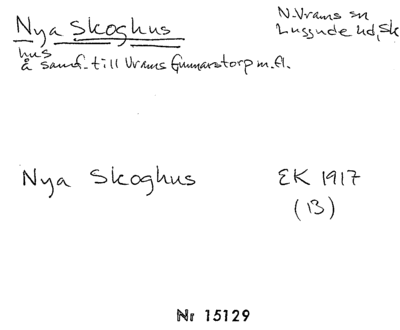 Nya Skoghus
N. Vrams sn
Luggude hd, Sk
hus
å samf. till Vrams Gunnarstorp m.fl.
Nya Skoghus
EK 1917
(13)
Nr 15129